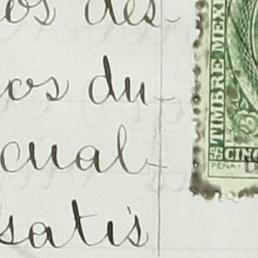 os des-
os du-
cual-
satis
TIMBRE MEX
CINC